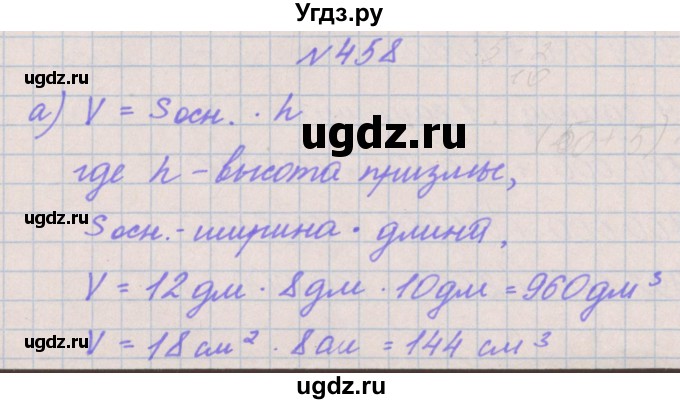 Угдз.ру
№458
ugdz.ru ugdz.ru
а) V = Sосн. · h
ugdz.ru
где h - высота призмы,
ugdz.ru ugdz.ru
Sосн. - ширина · длина.
V = 12 дм · 8 дм · 10 дм = 960 дм³
ugdz.ru ugdz.ru
V = 18 см² · 8 см = 144 см³
ugdz.ru